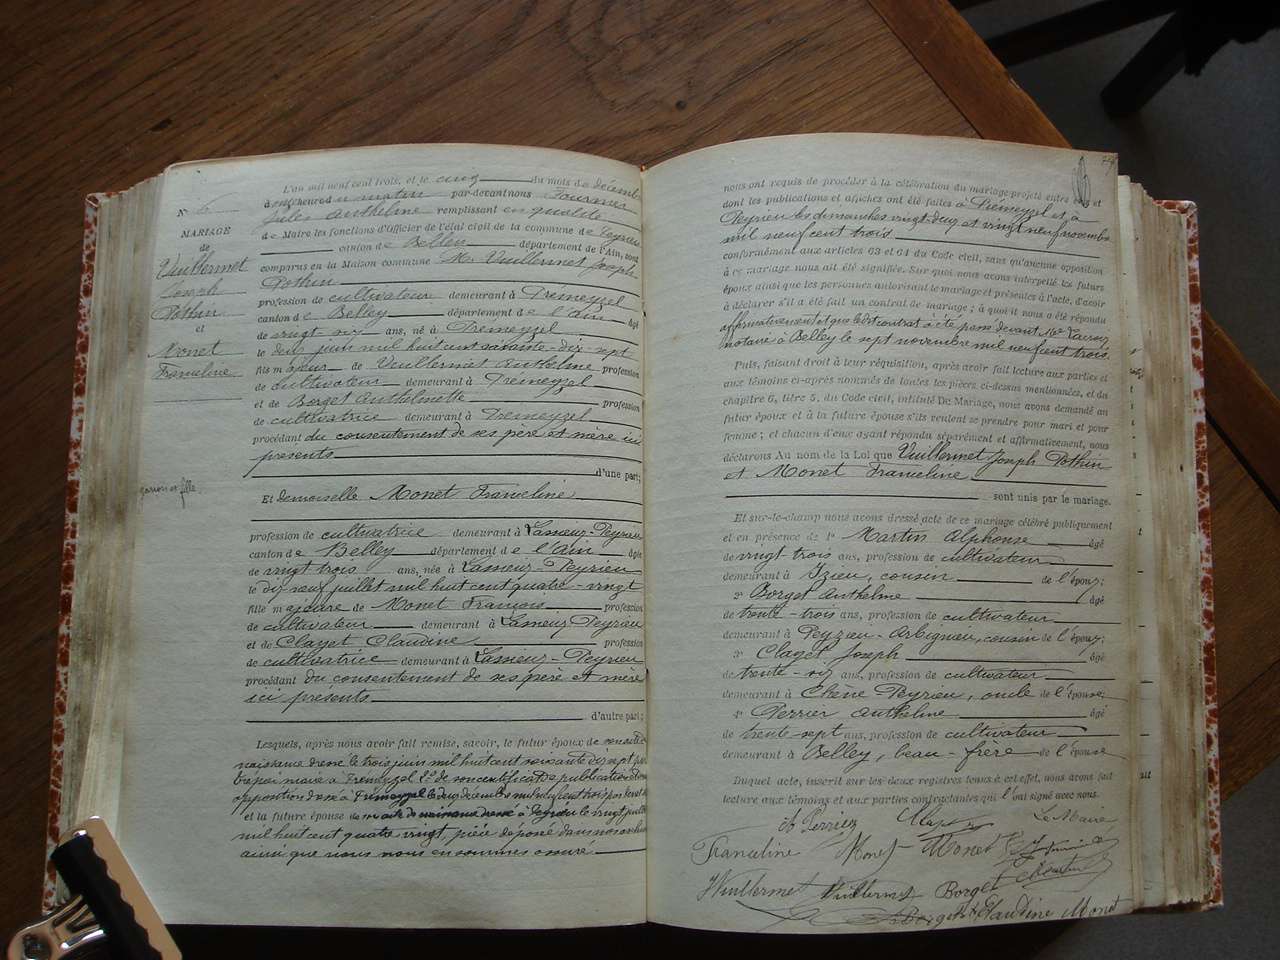 L'an mil neuf cent trois, et le cinq du mois de décembre
à onze heures du matin par-devant nous Fournier
Jules Anthelme remplissant en qualité
de Maire les fonctions d'Officier de l'état civil de la commune de Peyrieu
canton de Belley département de l'Ain, sont
comparus en la Maison commune M. Vuillermet Joseph
Pothin
profession de cultivateur demeurant à Premeyzel
canton de Belley département de l'Ain âgé
de vingt six ans, né à Premeyzel
le deux juin mil huit cent soixante-dix-sept
fils majeur de Vuillermet Anthelme profession
de cultivateur demeurant à Premeyzel
et de Borget Anthelmette profession
de cultivatrice demeurant à Premeyzel
procédant du consentement de ses père et mère ici
présents
d'une part;
N° 6
MARIAGE
de
Vuillermet
Joseph
Pothin
et
Monet
Franceline
garçon et fille
Et demoiselle Monet Franceline
profession de cultivatrice demeurant à Lameuz-Peyrieu
canton de Belley département de l'Ain âgée
de vingt trois ans, née à Lameuz-Peyrieu
le dix neuf juillet mil huit cent quatre-vingt
fille majeure de Monet François profession
de cultivateur demeurant à Lameuz Peyrieu
et de Clayet Claudine profession
de cultivatrice demeurant à Lameuz-Peyrieu
procédant du consentement de ses père et mère
ici présents
d'autre part;
Lesquels, après nous avoir fait remise, savoir, le futur époux de son acte de
naissance dressé le trois juin mil huit cent soixante dix sept par
maire à Premeyzel 2° de son certificat de publication et non
opposition dressé à Premeyzel le deux décembre mil neuf cent trois
et la future épouse de son acte de naissance dressé à Peyrieu le vingt juillet
mil huit cent quatre vingt, pièce déposée dans nos archives
ainsi que nous nous en sommes assuré
74
nous ont requis de procéder à la célébration du mariage projeté entre eux et
dont les publications et affiches ont été faites à Prémeyzel et à
Peyrieu les dimanches vingt-deux et vingt neuf novembre
mil neuf cent trois
conformément aux articles 63 et 64 du Code civil, sans qu'aucune opposition
à ce mariage nous ait été signifiée. Sur quoi nous avons interpellé les futurs
époux ainsi que les personnes autorisant le mariage et présentes à l'acte, d'avoir
à déclarer s'il a été fait un contrat de mariage; à quoi il nous a été répondu
affirmativement et que ledit contrat a été passé devant Me
notaire à Belley le sept novembre mil neuf cent trois.
Puis, faisant droit à leur réquisition, après avoir fait lecture aux parties et
aux témoins ci-après nommés de toutes les pièces ci-dessus mentionnées, et du
chapitre 6, titre 5, du Code civil, intitulé Du Mariage, nous avons demandé au
futur époux et à la future épouse s'ils veulent se prendre pour mari et pour
femme; et chacun d'eux ayant répondu séparément et affirmativement, nous
déclarons Au nom de la Loi que Vuillermet Joseph Pothin
et Monet Franceline
sont unis par le mariage.
Et sur-le-champ nous avons dressé acte de ce mariage célébré publiquement
et en présence de 1° Martin Alphonse âgé
de vingt trois ans, profession de cultivateur
demeurant à Izieu, cousin de l'époux;
2° Borget Anthelme âgé
de trente-trois ans, profession de cultivateur
demeurant à Peyzieu-Arbignieu, cousin de l'époux;
3° Claget Joseph âgé
de trente-six ans, profession de cultivateur
demeurant à Chene-Peyrieu, oncle de l'épouse;
4° Perrier Anthelme âgé
de trente-sept ans, profession de cultivateur
demeurant à Belley, beau-frère de l'épouse
Duquel acte, inscrit sur les deux registres tenus à cet effet, nous avons fait
lecture aux témoins et aux parties contractantes qui l'ont signé avec nous.
A Perrier Le Maire,
Franceline Monet Monet
Vuillermet Vuillermet Borget
Borget Claudine Monet